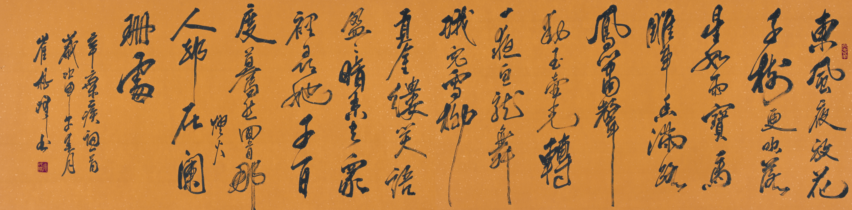 東風夜放花
千樹更吹落
星如雨寶馬
雕車香滿路
鳳簫聲
動玉壺光轉
一夜魚龍舞
蛾兒雪柳
黃金縷笑語
盈々暗香去眾
裡尋他千百
度驀然回首那
燈火
人却在闌
珊處
辛棄疾詞一首
歲次甲午月
崔书